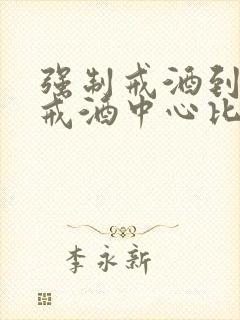 强制戒酒到
戒酒中心比
李永新